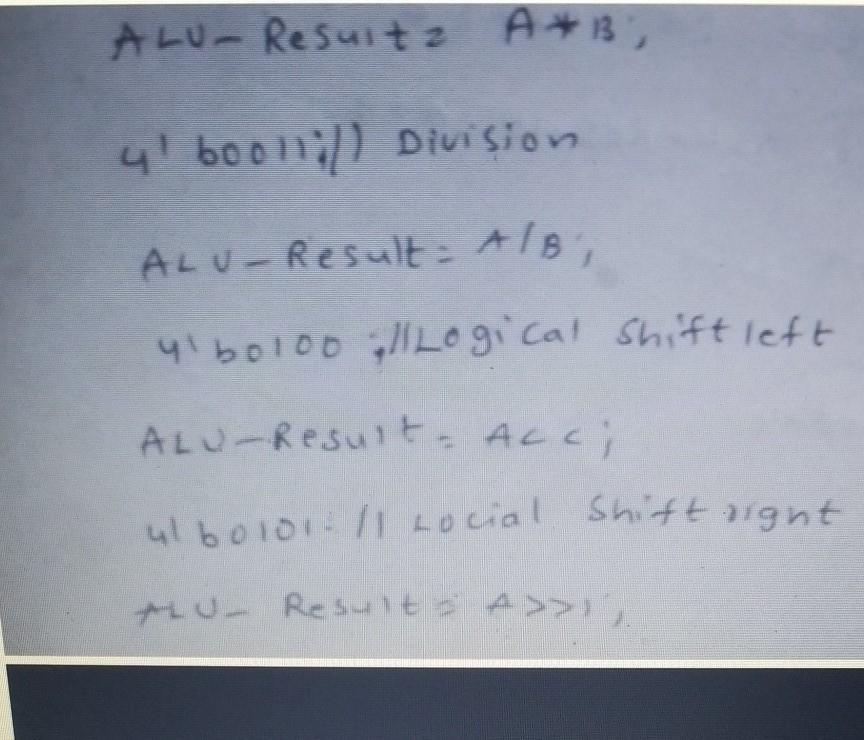 ALU-Result= A*B;
4'b0011;// Division
ALU-Result= A/B;
4'b0100;//Logical Shift left
ALU-Result= A<<;
4'b0101: // Locial Shift right
ALU-Result= A>>1;